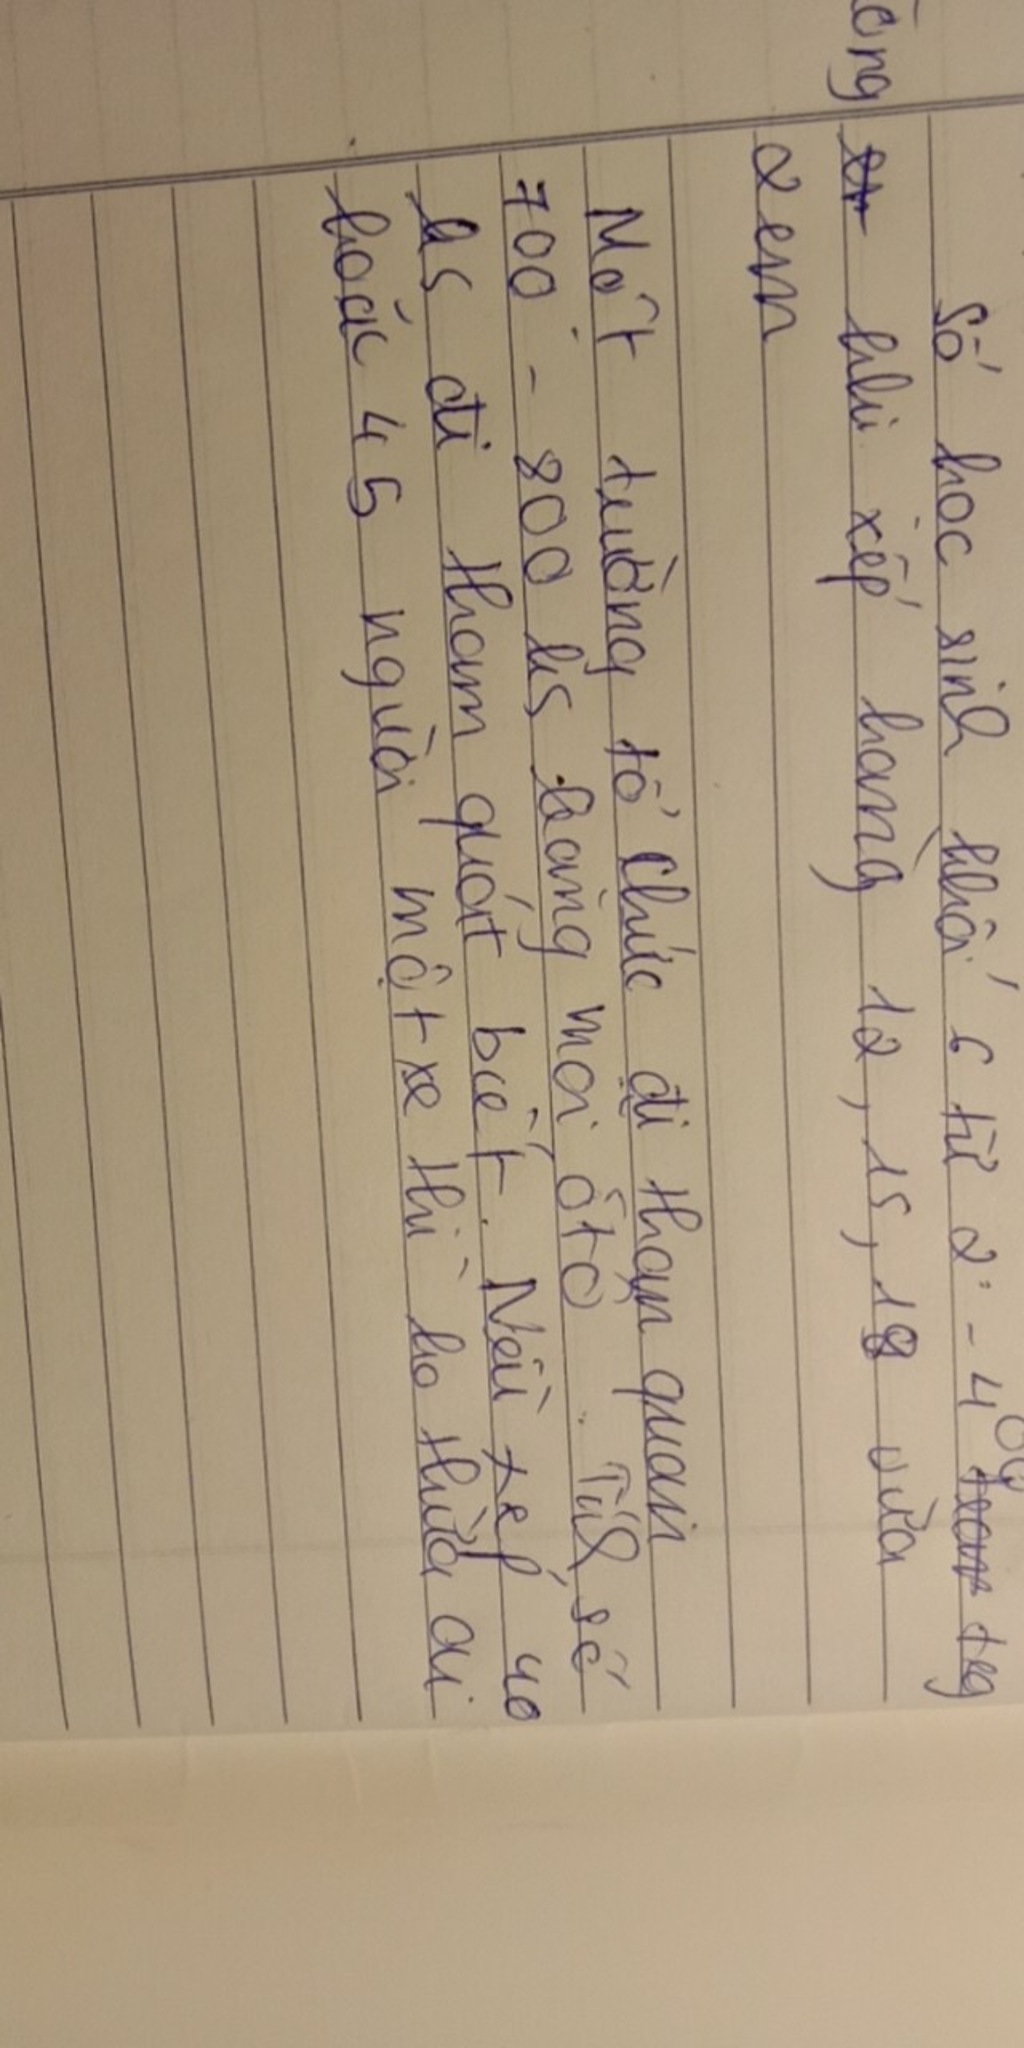 Số học sinh khối 6 từ 2 - 400 trg
khi xếp hàng 12, 15, 18 vừa
2 em
Một trường tổ chức đi thạn quan
700 - 800 hs bằng mọi ôtô. Tính số
hs đi tham quát biết. Nếu xếp 40
hoặc 45 người một xe thì ko thừa ai